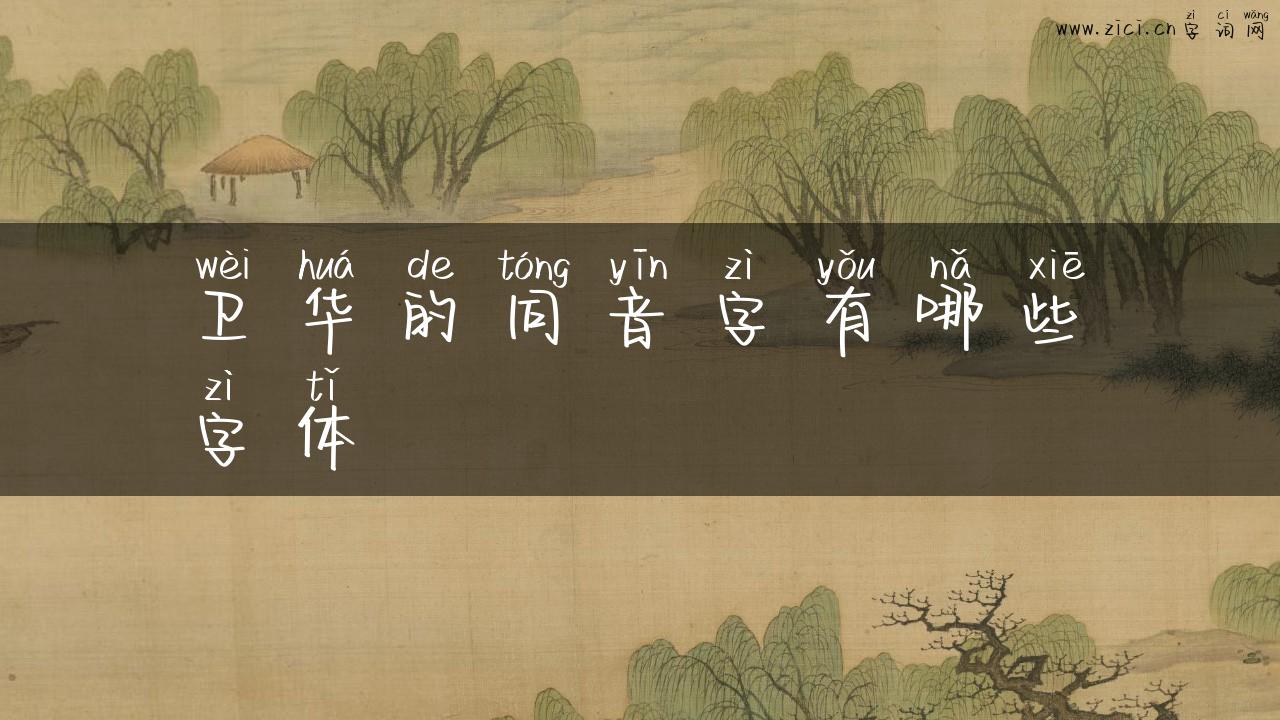 zì cí wǎng
www.zici.cn字词网
wèi huá de tóng yīn zì yǒu nǎ xiē
卫华的同音字有哪些
zì tǐ
字体